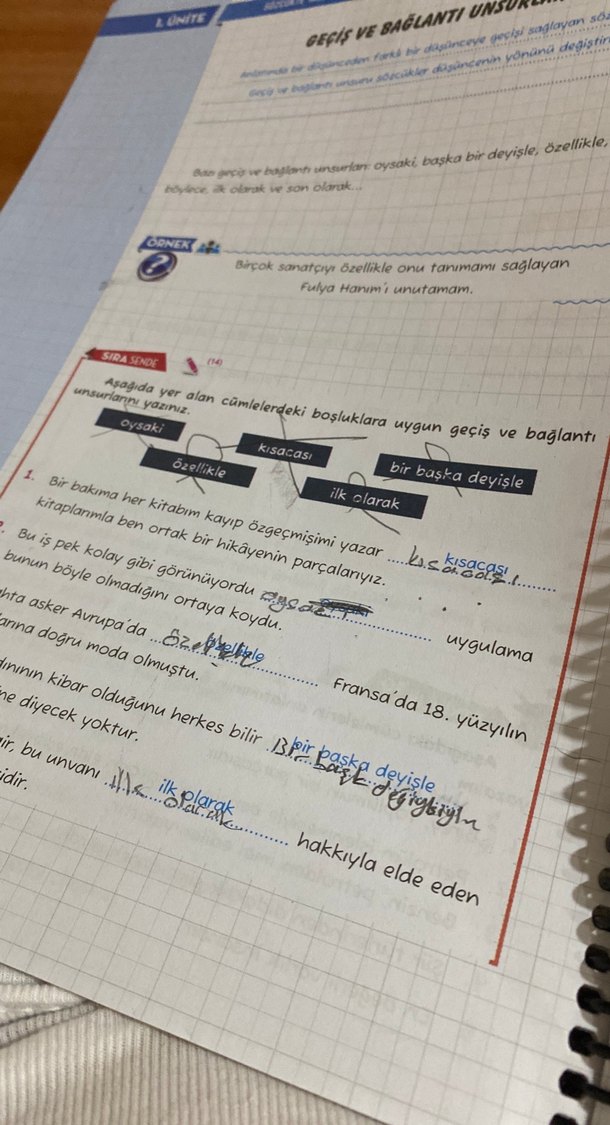 1. ÜNİTE
GEÇİŞ VE BAĞLANTI
Anlatımda bir düşünceden farklı bir düşünceye geçişi sağlayan
Geçiş ve bağlantı unsuru sözcükler düşüncenin yönünü
Bazı geçiş ve bağlantı unsurları: oysaki, başka bir deyişle, özellikle,
böylece, ilk olarak ve son olarak...
ÖRNEK
?
Birçok sanatçıyı özellikle onu tanımamı sağlayan
Fulya Hanım'ı unutamam.
SIRA SENDE
(14)
Aşağıda yer alan cümlelerdeki boşluklara uygun geçiş ve bağlantı
unsurlarını yazınız.
oysaki
kısacası
özellikle
bir başka deyişle
ilk olarak
1. Bir bakıma her kitabım kayıp özgeçmişimi yazar kısacası kısacası
kitaplarımla ben ortak bir hikâyenin parçalarıyız.
Bu iş pek kolay gibi görünüyordu oysaki uygulama
bunun böyle olmadığını ortaya koydu.
asker Avrupa'da özellikle özellikle Fransa'da 18. yüzyılın
doğru moda olmuştu.
kibar olduğunu herkes bilir bir başka deyişle Bir başk
ne diyecek yoktur.
bu unvanı ilk olarak ilk olarak hakkıyla elde eden